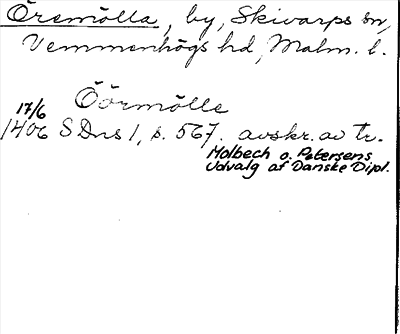 Öremölla, by, Skivarps sn,
Vemmenhögs hd, Malm. l.
Öörmölle
17/6
1406 SDns 1, s. 567. avskr. av tr.
Molbech o. Petersens
Udvalg af Danske Dipl.